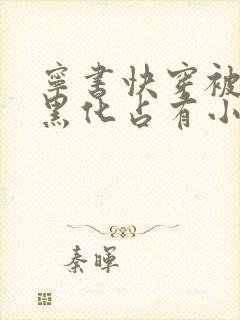 宁书快穿被
黑化占有小
秦晖